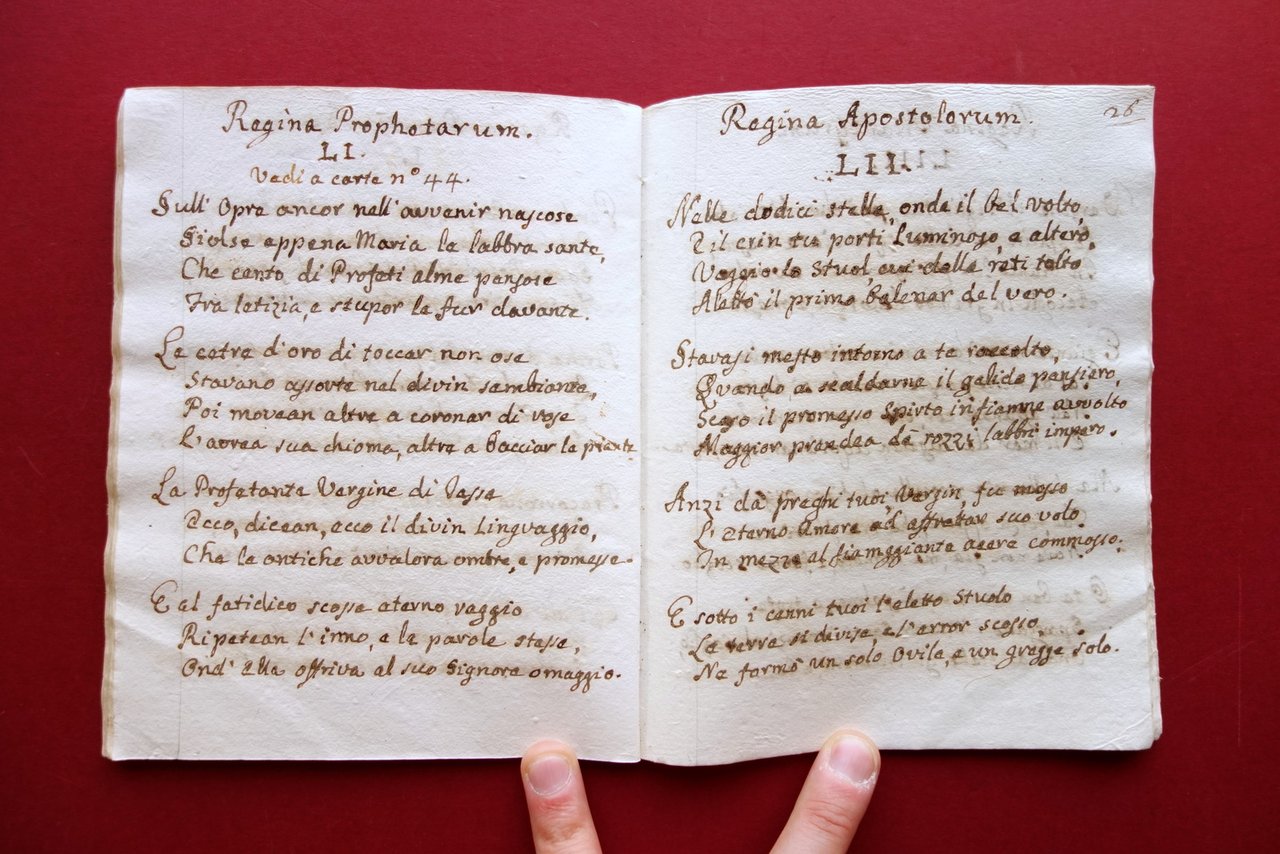 Regina Prophetarum.
LI.
Vedi a carte nº 44.
Sull' Opre ancor nell'avvenir nascose
Sciolse appena Maria le labbra sante,
Che cento di Profeti alme pensose
Tra letizia, e stupor le fur davante.
Le cetre d'oro di toccar non ose
Stavano assorte nel divin sembiante,
Poi movean altre a coronar di rose
L'aurea sua chioma, altre a bacciar le piante
La Profetante Vergine di Jesse
Ecco, dicean, ecco il divin Linguaggio,
Che le antiche avvalora ombre, e promesse.
E al fatidico scosse eterno raggio
Ripetean l'inno, e le parole stesse,
Ond' Ella offriva al suo Signore omaggio.
Regina Apostolorum.
26
LII.
Nelle dodici stelle, onde il bel volto,
E il crin tu porti Luminoso, e altero,
Veggio lo Stuol, cui dalle reti tolto
Alettò il primo balenar del vero.
Stavasi mesto intorno a te raccolto,
Quando a scaldarne il gelido pensiero,
Scese il promesso Spirto in fiamme avvolto
Maggior prendea dà rozzi labbri impero.
Anzi dà preghi tuoi, Vergin, fu mosso
L'Eterno Amore ad affrettar suo volo
In mezzo al fiammeggiante aere commosso.
E sotto i cenni tuoi l'eletto Stuolo
La terra si divise, e l'error scosso,
Ne formò un solo Ovile, e un gregge solo.